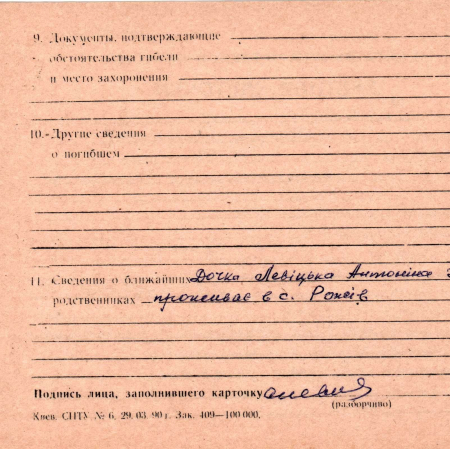 9. Документы, подтверждающие
обстоятельства гибели
и место захоронения
10. Другие сведения
о погибшем
11. Сведения о ближайших Дочка Левіцька Антоніна
родственниках проживає в с. Роксів
Подпись лица, заполнившего карточку
(разборчиво)
Киев. СПТУ № 6. 29. 03. 90 г. Зак. 409—100 000.